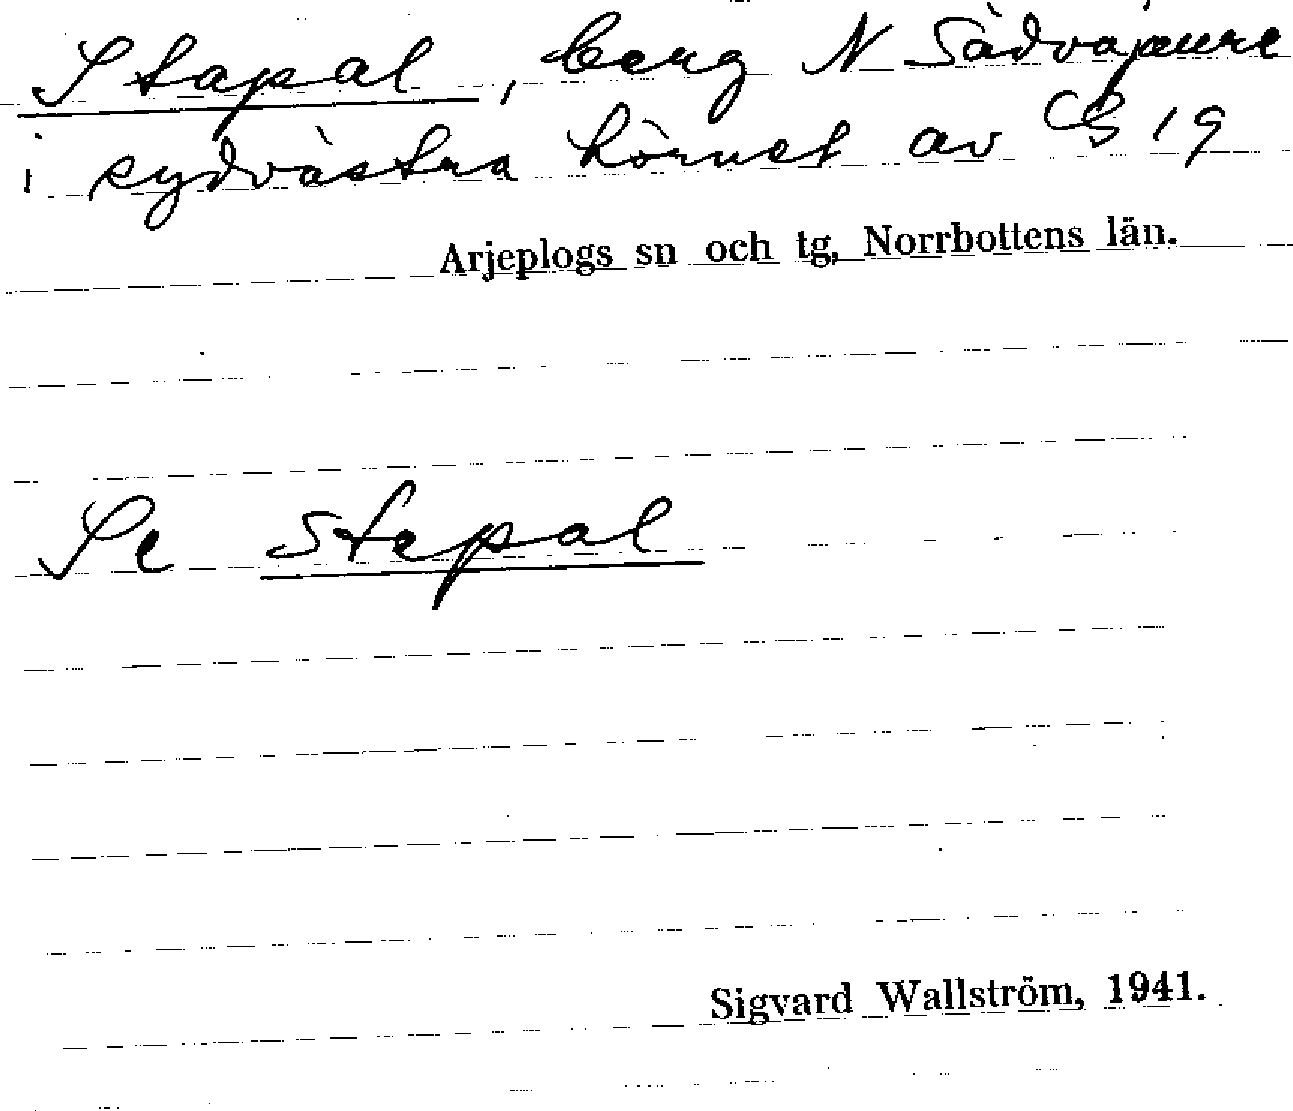 Stapal, berg N Sädvajaure
i sydvästra hörnet av G 19
Arjeplogs sn och tg, Norrbottens län.
Se Stepal
Sigvard Wallström, 1941.